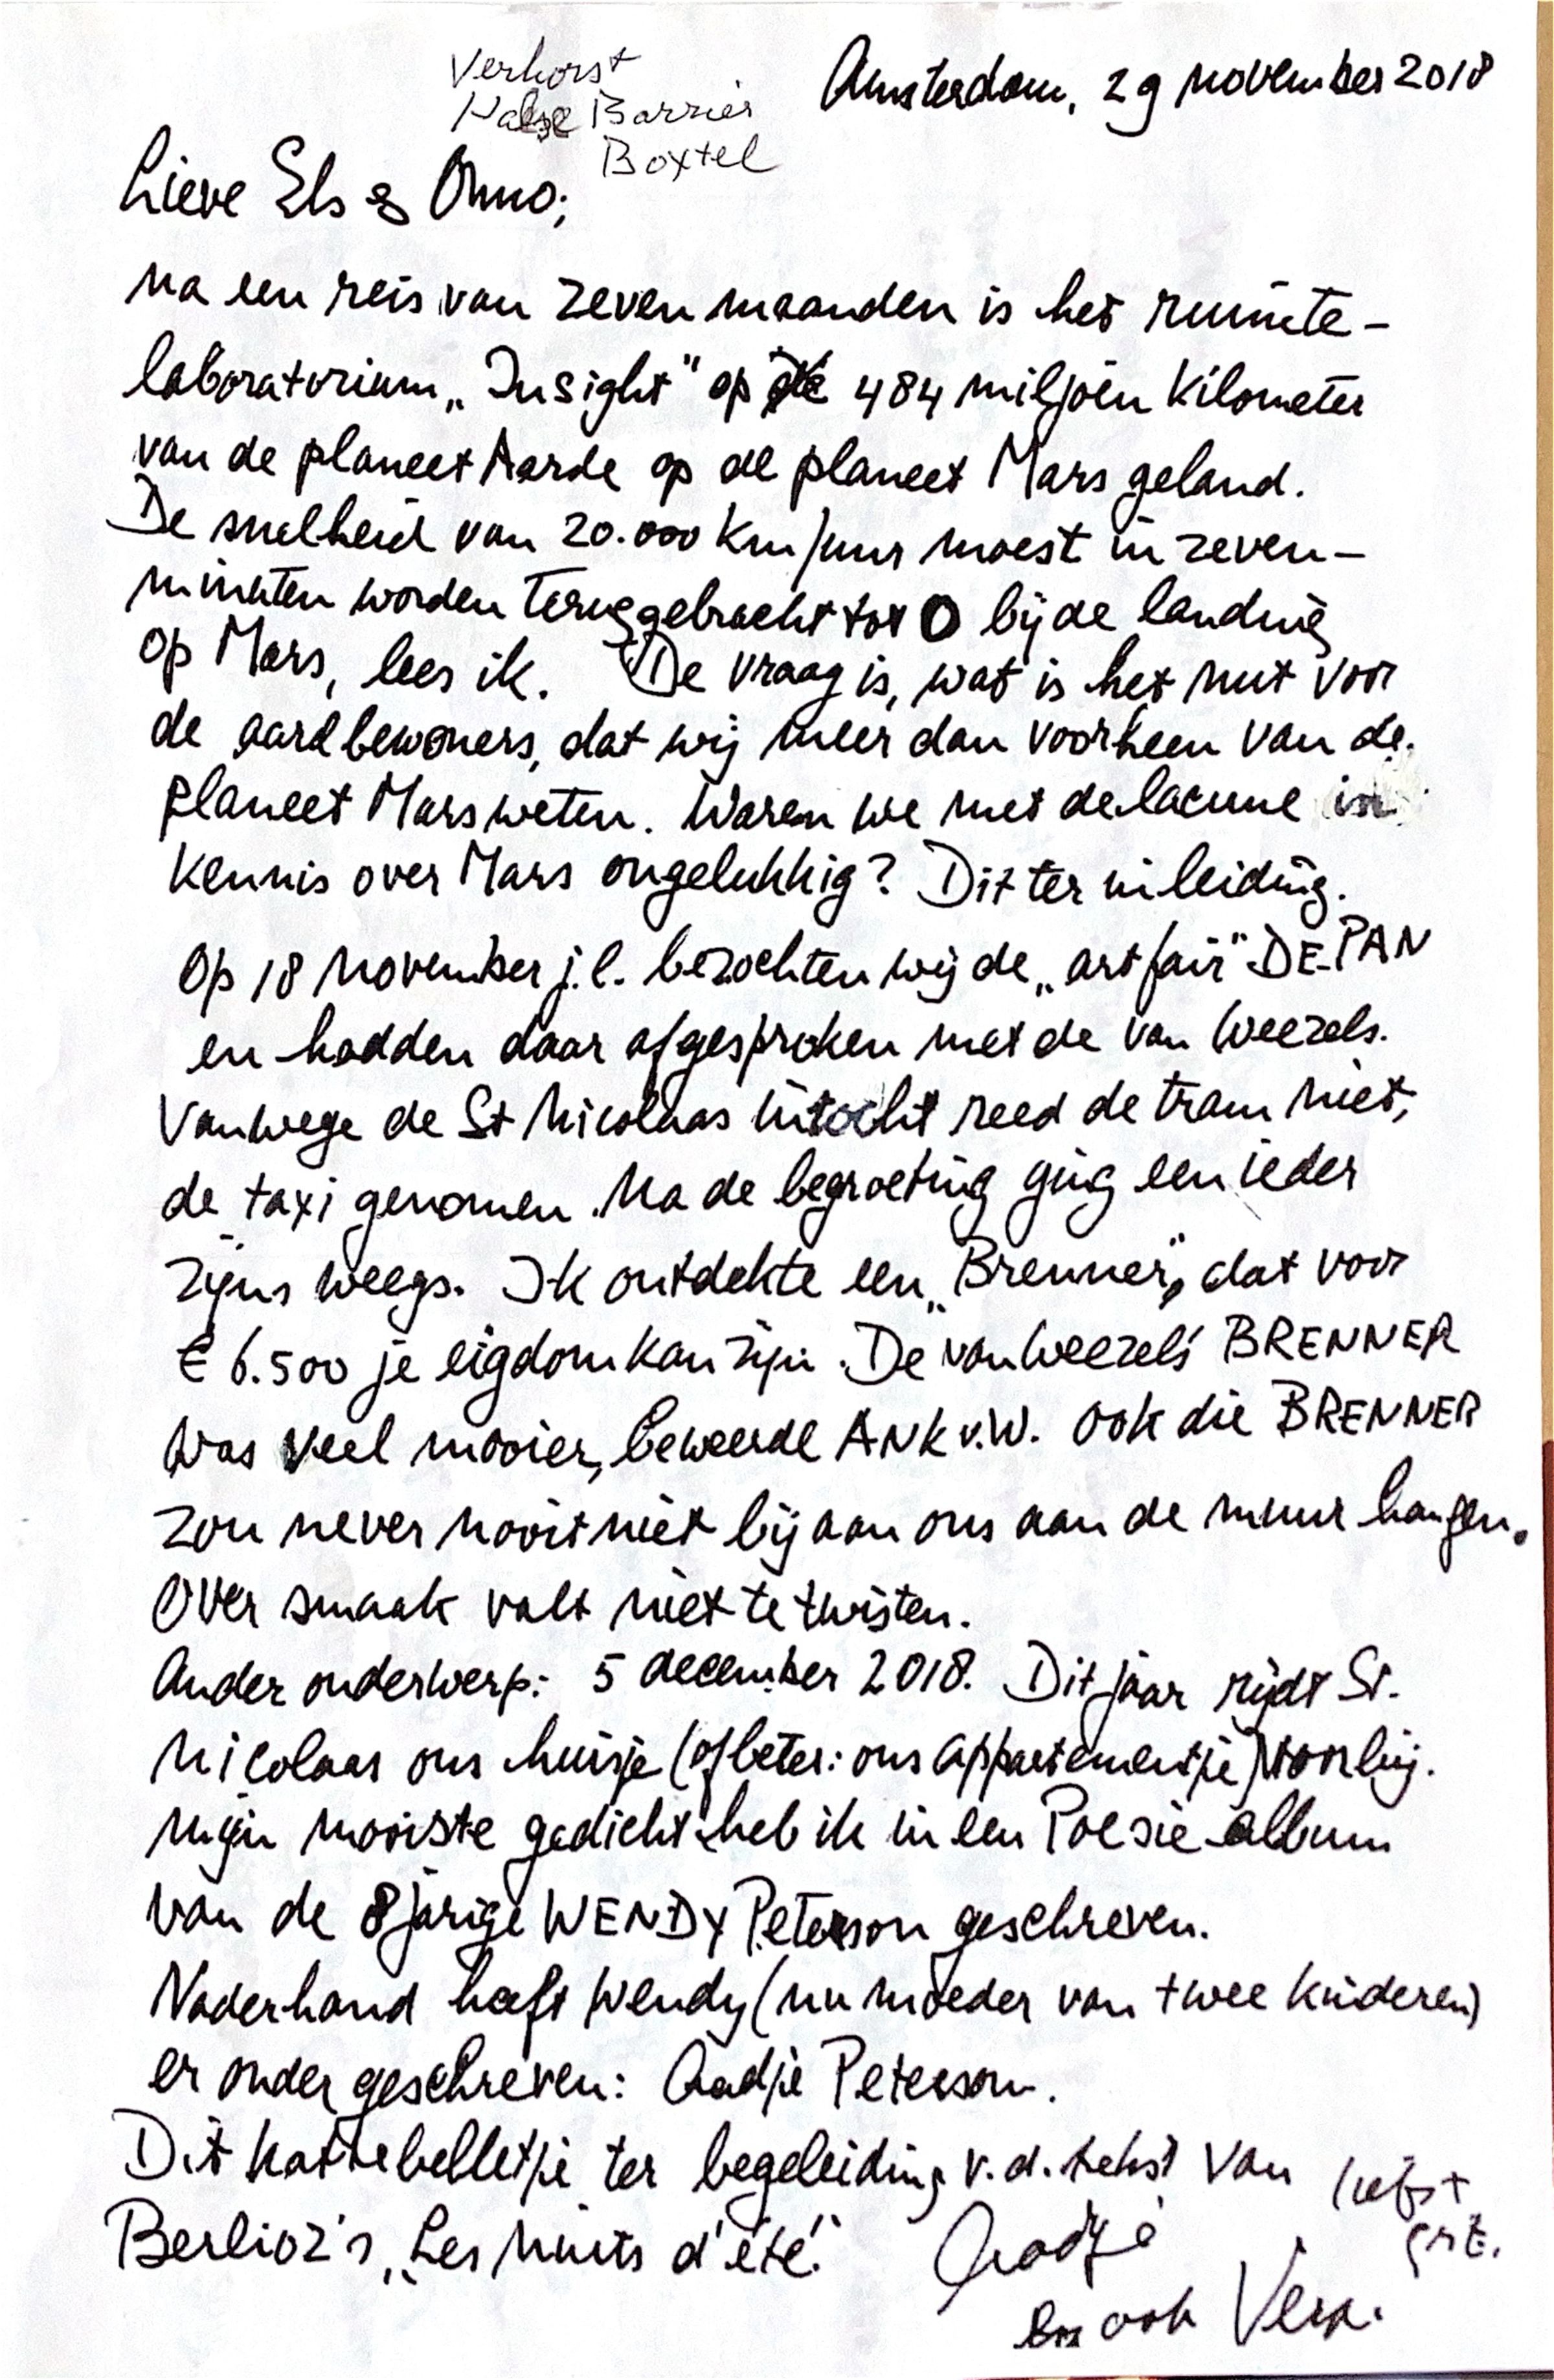 Verhorst
Halse Barrier
Boxtel
Amsterdam, 29 november 2018
Lieve Els & Onno;
na een reis van zeven maanden is het ruimte-
laboratorium „Insight" op de 484 miljoen kilometer
van de planeet Aarde op de planeet Mars geland.
De snelheid van 20.000 km/uur moest in zeven-
minuten worden teruggebracht tot 0 bij de landing
op Mars, lees ik. De vraag is, wat is het nut voor
de aardbewoners, dat wij meer dan voorheen van de
planeet Mars weten. Waren we met de lacune in
kennis over Mars ongelukkig? Dit ter inleiding.
Op 18 november j.l. bezochten wij de „art fair" DE PAN
en hadden daar afgesproken met de van Weezels.
Vanwege de St Nicolaas intocht reed de tram niet,
de taxi genomen. Na de begroeting ging een ieder
zijns weegs. Ik ontdekte een „Brenner", dat voor
€ 6.500 je eigdom kan zijn. De van Weezels' BRENNER
was veel mooier, beweerde ANK v.W. Ook die BRENNER
zou never nooit niet bij aan ons aan de muur hangen.
Over smaak valt niet te twisten.
Ander onderwerp: 5 december 2018. Dit jaar rijdt St.
Nicolaas ons huisje (of beter: ons appartementje) voorbij.
Mijn mooiste gedicht heb ik in een Poesie album
van de 8 jarige WENDY Peterson geschreven.
Naderhand heeft Wendy (nu moeder van twee kinderen)
er onder geschreven: Aadje Peterson.
Dit kattebelletje ter begeleiding v.d. tekst van
Berlioz's „Les nuits d'été."
liefst
grt.
Aadje
en ook Vera.